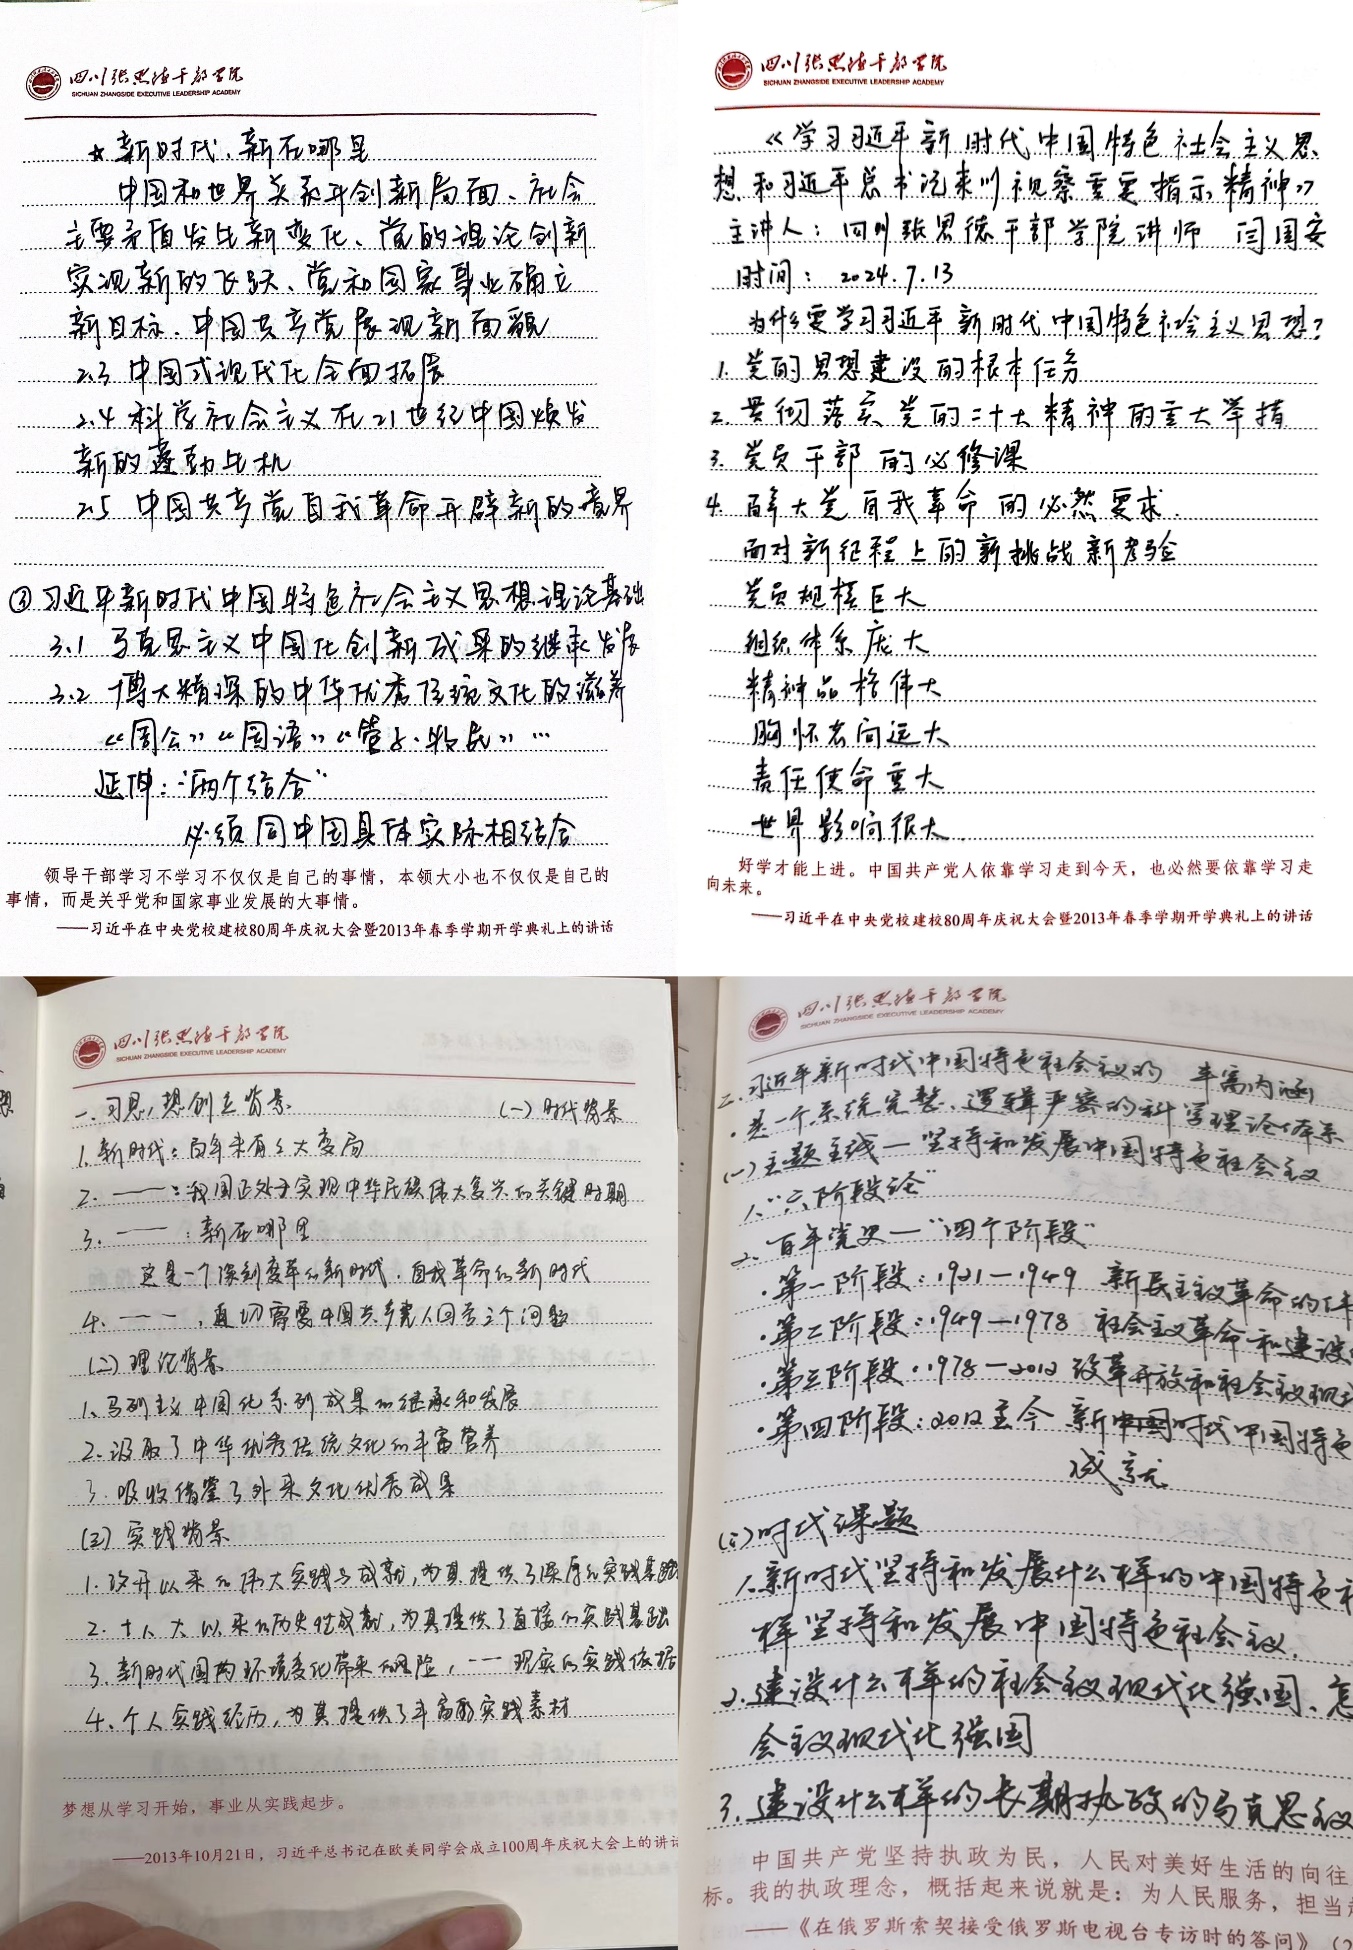 四川张思德干部学院
SICHUAN ZHANGSIDE EXECUTIVE LEADERSHIP ACADEMY
☆新时代、新在哪里
中国和世界关系开创新局面、社会
主要矛盾发生新变化、党的理论创新
实现新的飞跃、党和国家事业确立
新目标、中国共产党展现新面貌
2.3 中国式现代化全面拓展
2.4 科学社会主义在21世纪中国焕发
新的蓬勃生机
2.5 中国共产党自我革命开辟新的境界
③习近平新时代中国特色社会主义思想理论基础
3.1 马克思主义中国化创新成果的继承发展
3.2 博大精深的中华优秀传统文化的滋养
《周公》《国语》《管子·牧民》…
延伸：“两个结合”
必须同中国具体实际相结合
领导干部学习不学习不仅仅是自己的事情，本领大小也不仅仅是自己的
事情，而是关乎党和国家事业发展的大事情。
——习近平在中央党校建校80周年庆祝大会暨2013年春季学期开学典礼上的讲话
四川张思德干部学院
SICHUAN ZHANGSIDE EXECUTIVE LEADERSHIP ACADEMY
《学习习近平新时代中国特色社会主义思
想和习近平总书记来川视察重要指示精神》
主讲人：四川张思德干部学院讲师 闫国安
时间：2024.7.13
为什么要学习习近平新时代中国特色社会主义思想？
1. 党的思想建设的根本任务
2. 贯彻落实党的二十大精神的重大举措
3. 党员干部的必修课
4. 百年大党自我革命的必然要求.
面对新征程上的新挑战新考验
党员规模巨大
组织体系庞大
精神品格伟大
胸怀志向远大
责任使命重大
世界影响很大.
好学才能上进。中国共产党人依靠学习走到今天，也必然要依靠学习走
向未来。
——习近平在中央党校建校80周年庆祝大会暨2013年春季学期开学典礼上的讲话
四川张思德干部学院
SICHUAN ZHANGSIDE EXECUTIVE LEADERSHIP ACADEMY
一、习思想创立背景 （一）时代背景
1. 新时代：百年未有之大变局
2. ——：我国正处于实现中华民族伟大复兴的关键时期
3. ——：新在哪里
这是一个深刻变革的新时代、自我革命的新时代
4. ———，直切需要中国共产党人回答三个问题
（二）理论背景
1、马列主义中国化系列成果的继承和发展
2. 汲取了中华优秀传统文化的丰富营养
3. 吸收借鉴了外来文化优秀成果
（三）实践背景
1. 改开以来的伟大实践与成就，为其提供了深厚的实践基础
2. 十八大以来的历史性成就，为其提供了直接的实践基础
3. 新时代国内环境变化带来的风险，—— 现实的实践依据
4. 个人实践经历，为其提供了丰富的实践素材
梦想从学习开始，事业从实践起步。
——2013年10月21日，习近平总书记在欧美同学会成立100周年庆祝大会上的讲话
四川张思德干部学院
SICHUAN ZHANGSIDE EXECUTIVE LEADERSHIP ACADEMY
二.习近平新时代中国特色社会主义的 丰富内涵
·是一个系统完整、逻辑严密的科学理论体系
（一）主题主线—坚持和发展中国特色社会主义
1.“六阶段论”
2. 百年党史—“四个阶段”
·第一阶段：1921—1949 新民主主义革命的
·第二阶段：1949—1978 社会主义革命和建设
·第三阶段：1978—2012 改革开放和社会主义现
·第四阶段：2012至今 新中国时代中国特色
成就
（二）时代课题
1.新时代坚持和发展什么样的中国特色
样坚持和发展中国特色社会主义.
2.建设什么样的社会主义现代化强国、怎
会主义现代化强国
3.建设什么样的长期执政的马克思主义
中国共产党坚持执政为民，人民对美好生活的向往
标。我的执政理念，概括起来说就是：为人民服务，担当
——《在俄罗斯索契接受俄罗斯电视台专访时的答问》（2